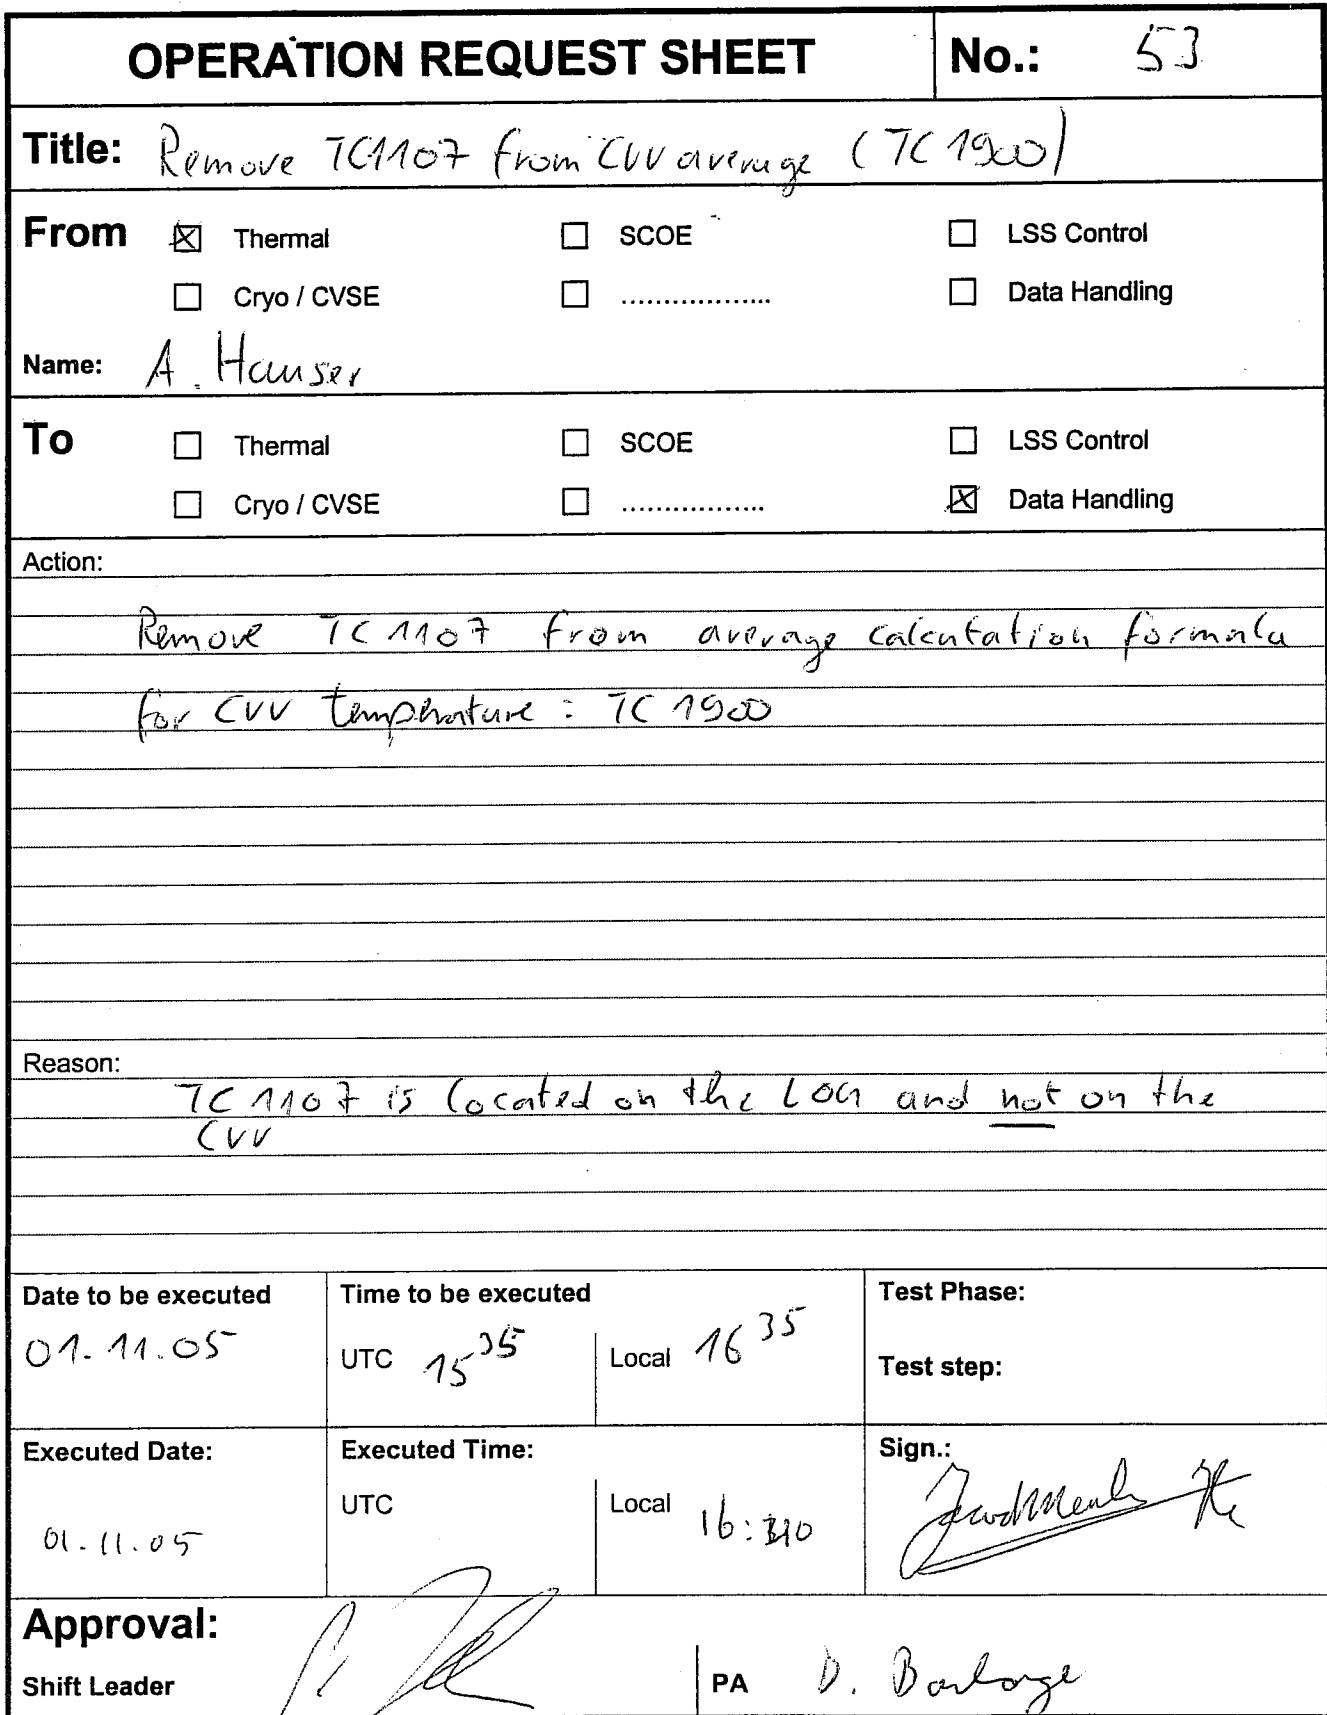 OPERATION REQUEST SHEET No.: 53
Title: Remove TC1107 from CVV average (TC 1900)
From ☒ Thermal ☐ SCOE ☐ LSS Control
☐ Cryo / CVSE ☐ .................. ☐ Data Handling
Name: A. Hauser
To ☐ Thermal ☐ SCOE ☐ LSS Control
☐ Cryo / CVSE ☐ ................. ☒ Data Handling
Action:
Remove TC 1107 from average calculation formula
for CVV temperature : TC 1900
Reason:
TC 1107 is located on the LOU and not on the
CVV
Date to be executed Time to be executed Test Phase:
01.11.05 UTC 15 35 Local 16 35
Test step:
Executed Date: Executed Time: Sign.:
01.11.05 UTC Local 16:
Approval:
Shift Leader PA D.